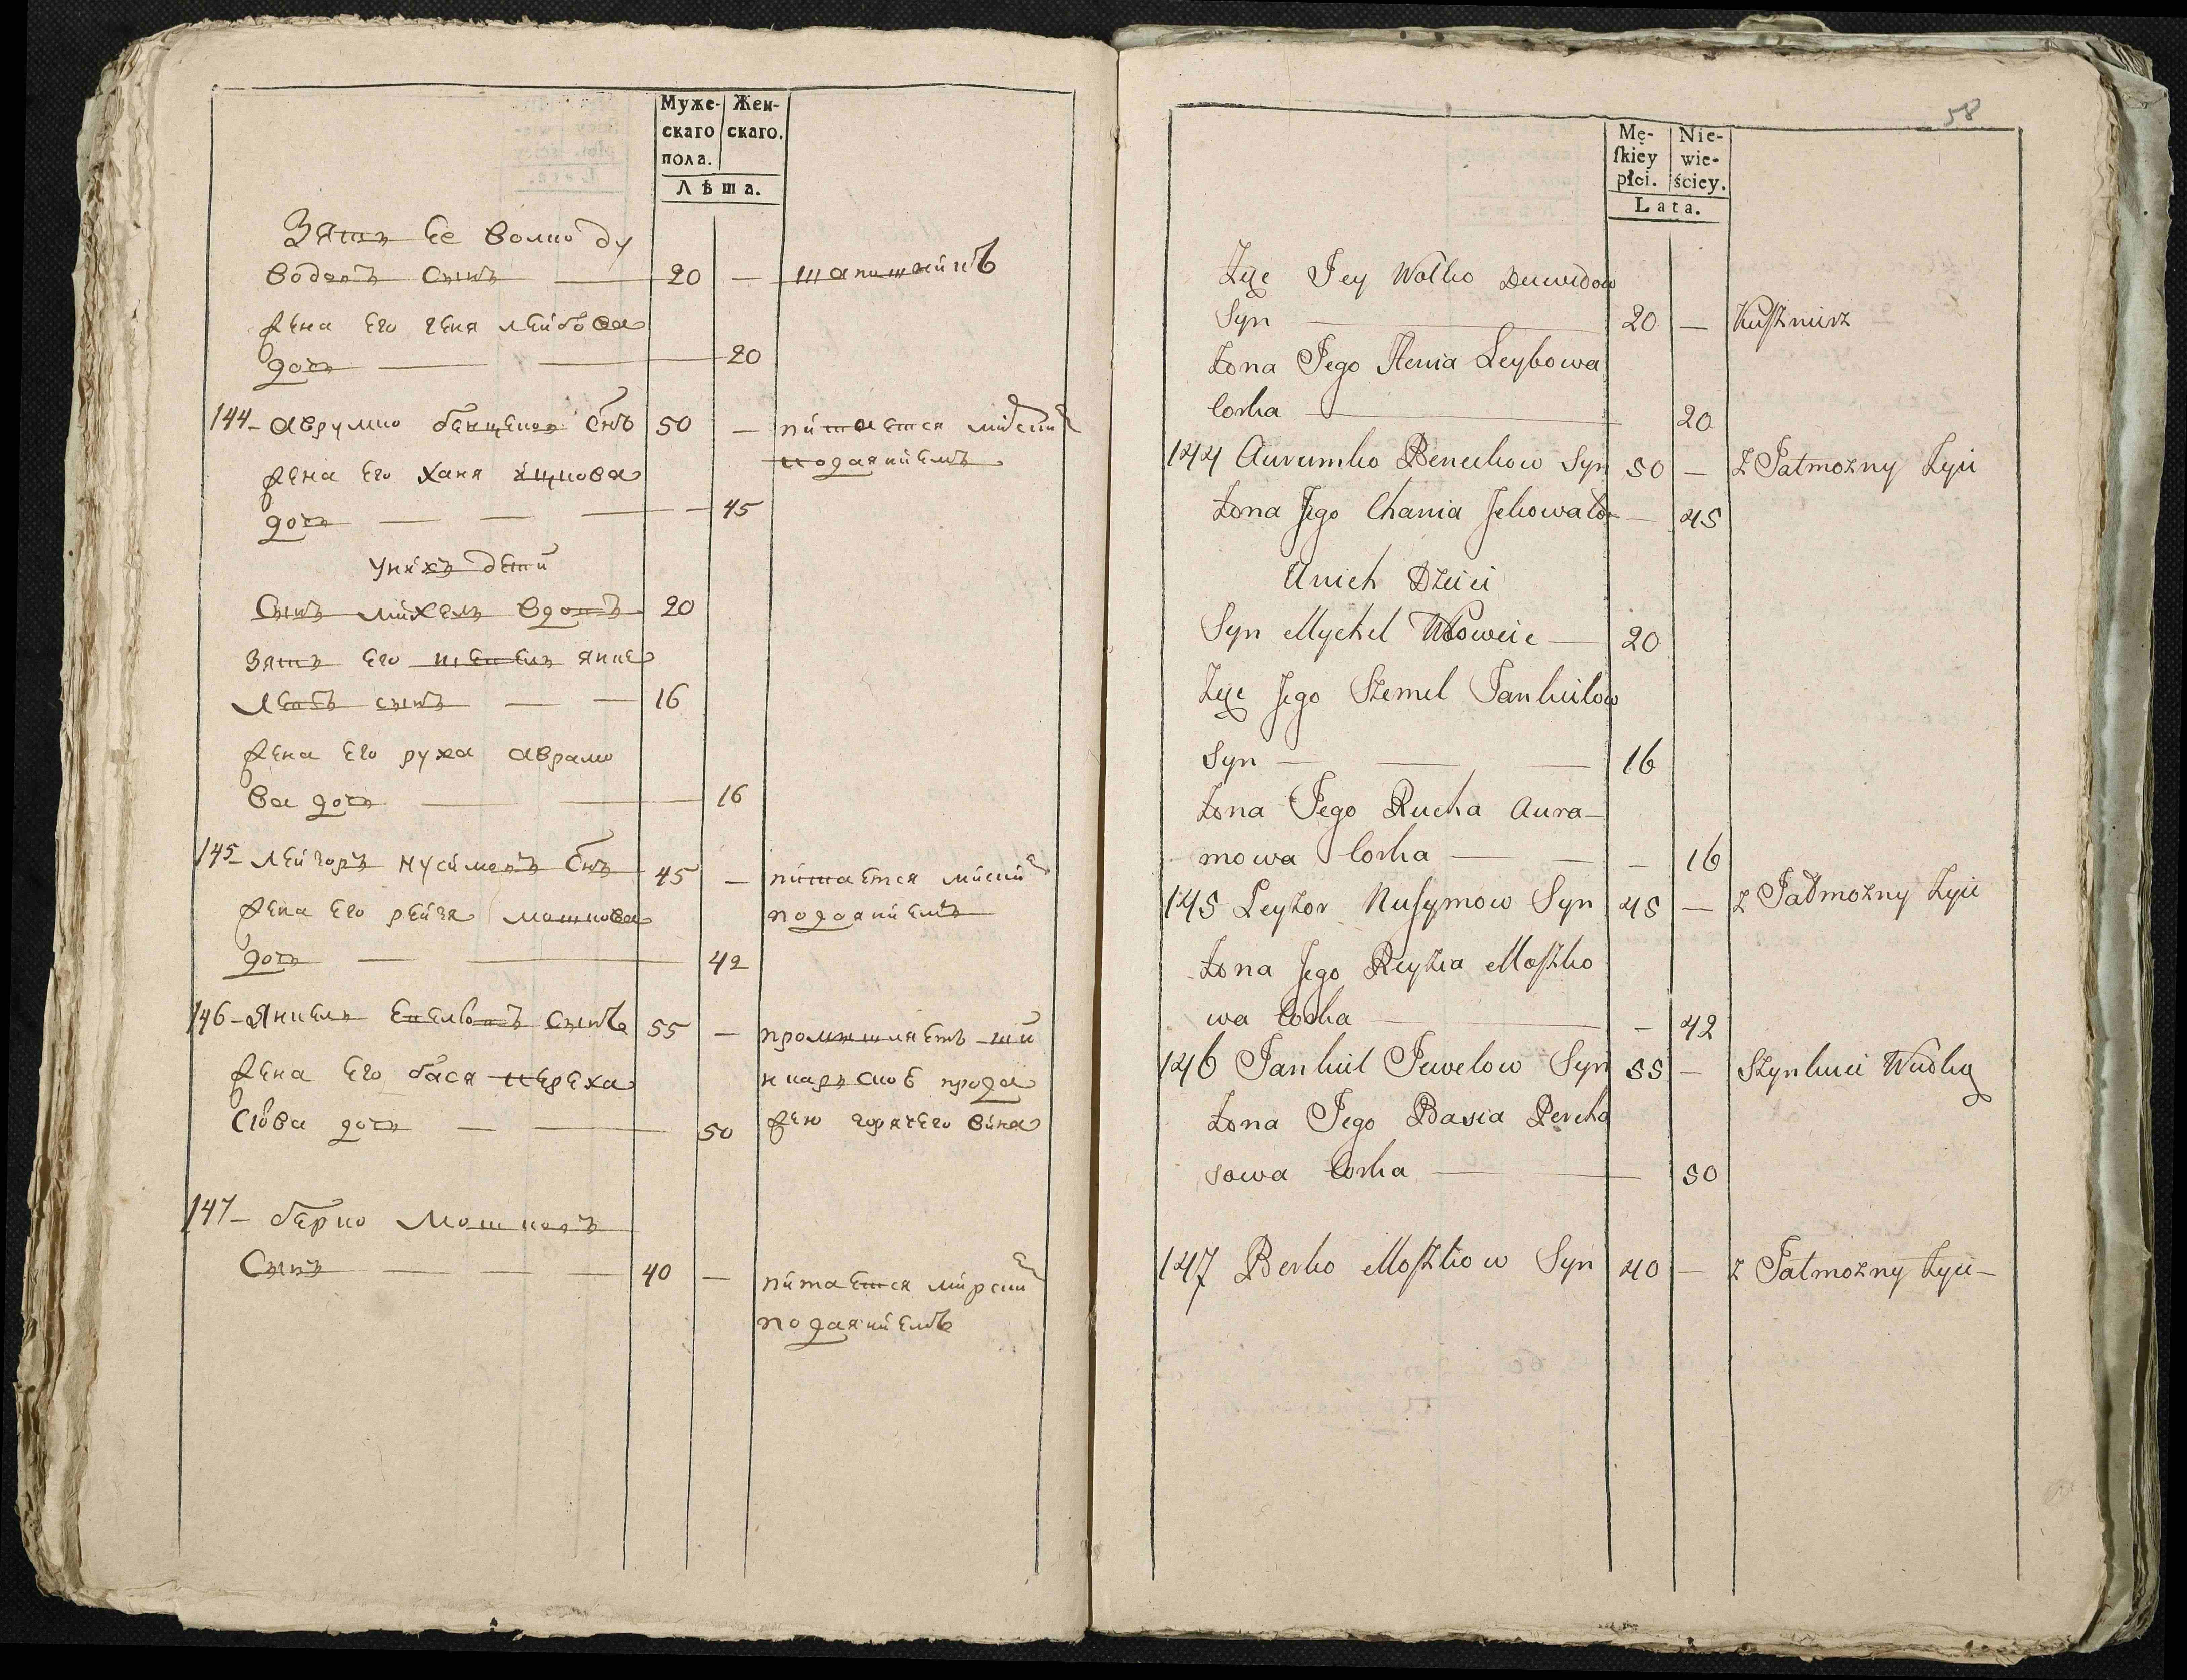 Муже- Жен-
скаго скаго.
пола.
Лѣта.
Зять Ее Волко ду
водовъ Сынъ — 20 — шапошникъ
жена Его геня лейбова
дочь — — 20
144 - Аврумко бенцековъ Снъ 50 — питается мирским
жена Его Ханя ицкова подаяниемъ
дочь — — — 45
уних дети
Сынъ михель вдовъ 20
зять Его шемель янке
левъ сынъ — — 16
жена Его руха аврамо
ва дочь — — 16
145 - лейзоръ нусимовъ Снъ 45 — питается мирским
жена Его рейзя мошкова подоянием
дочь — — 42
146 - Янкель Евельовъ Сынъ 55 — промышляеть ши
жена Его бася переха нкарскою прода
сова дочь — — 50 жею горячего вина
147 - берко мошковъ
Сынъ — — — 40 — питается мирским
подаяниемъ
58
Mę- Nie-
skiey wie-
płci. ściey.
Lata.
Zięc Jey Wolko Duwidow
Syn — 20 — Kuſznirz
Żona Jego Henia Leybowa
Corka — 20
144 Aurumko Benckow Syn 50 — Z Jatmożny Żyie
Żona Jego Chania Jckowa Cor — 45
Unich Dzieci
Syn Mychel Wdowiec — 20
Zięc Jego Szemel Jankielow
Syn — — — 16
Żona Jego Rucha Aura-
mowa Corka — — — 16
145 Leyzor Nuſymow Syn 45 — z Jatmożny Żyie
Żona Jego Reyzia Moſzko
wa Corka — — 42
146 Jankiel Jewelow Syn 55 — Szynkuie Wudką
Żona Jego Basia Percha
sowa Corka — 50
147 Berko Moſzkow Syn 40 — z Jatmożny Żyie —